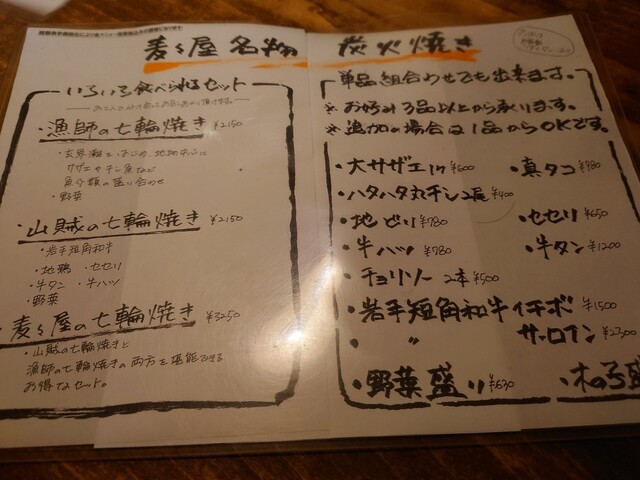 麦々屋名物 炭火焼き
いろいろ食べられるセット
・漁師の七輪焼き ¥2,150
・野菜
・山賊の七輪焼き ¥2,150
・岩手短角和牛
・地鶏 ・セセリ
・牛タン ・牛ハツ
・野菜
・麦々屋の七輪焼き ¥3250
・山賊の七輪焼きと
漁師の七輪焼きの両方を堪能できる
お得なセット。
単品組合わせでも出来ます。
※お好み3品以上から承ります。
※追加の場合は1品からOKです。
・大サザエ1ケ ¥600 ・真タコ ¥780
・ハタハタ丸干し2尾 ¥400
・地どり ¥780 ・セセリ ¥650
・牛ハツ ¥780 ・牛タン ¥1200
・チョリソー 2本 ¥500
・岩手短角和牛イチボ ¥1500
・ 〃 サーロイン ¥2,300
・野菜盛り ¥630 ・木の子盛